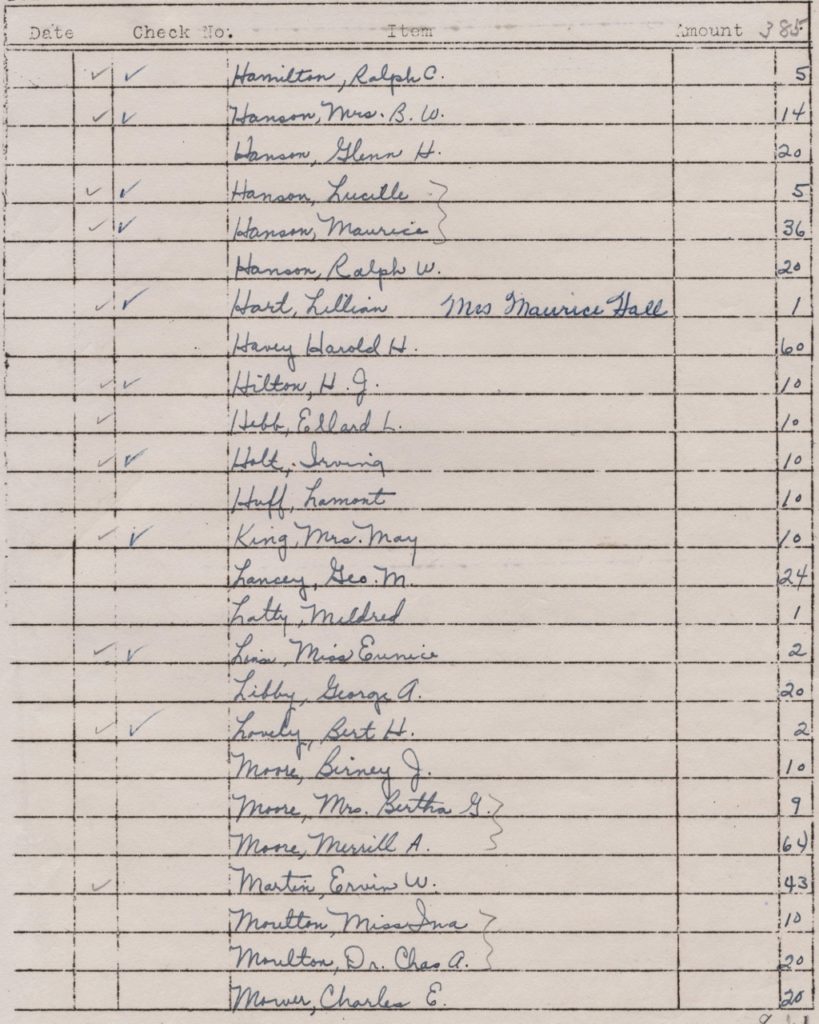 Date Check No. Item Amount 385
✓ ✓ Hamilton, Ralph C. 5
✓ ✓ Hanson, Mrs. B. W. 14
Hanson, Glenn H. 20
✓ ✓ Hanson, Lucille 5
✓ ✓ Hanson, Maurice 36
Hanson, Ralph W. 20
✓ ✓ Hart, Lillian Mrs Maurice Hall 1
Havey Harold H. 60
✓ ✓ Hilton, H. J. 10
✓ Hebb, Ellard L. 10
✓ ✓ Holt, Irving 10
Huff, Lamont 10
✓ ✓ King, Mrs. May 10
Lancey, Geo. M. 24
Latty, Mildred 1
✓ ✓ Miss Eunice 2
Libby, George A. 20
✓ ✓ Lovely, Bert H. 2
Moore, Birney J. 10
Moore, Mrs. Bertha G. 9
Moore, Merrill A. 64
✓ Martin, Ervin W. 43
Moulton, Miss Ina 10
Moulton, Dr. Chas A. 20
Mower, Charles E. 20